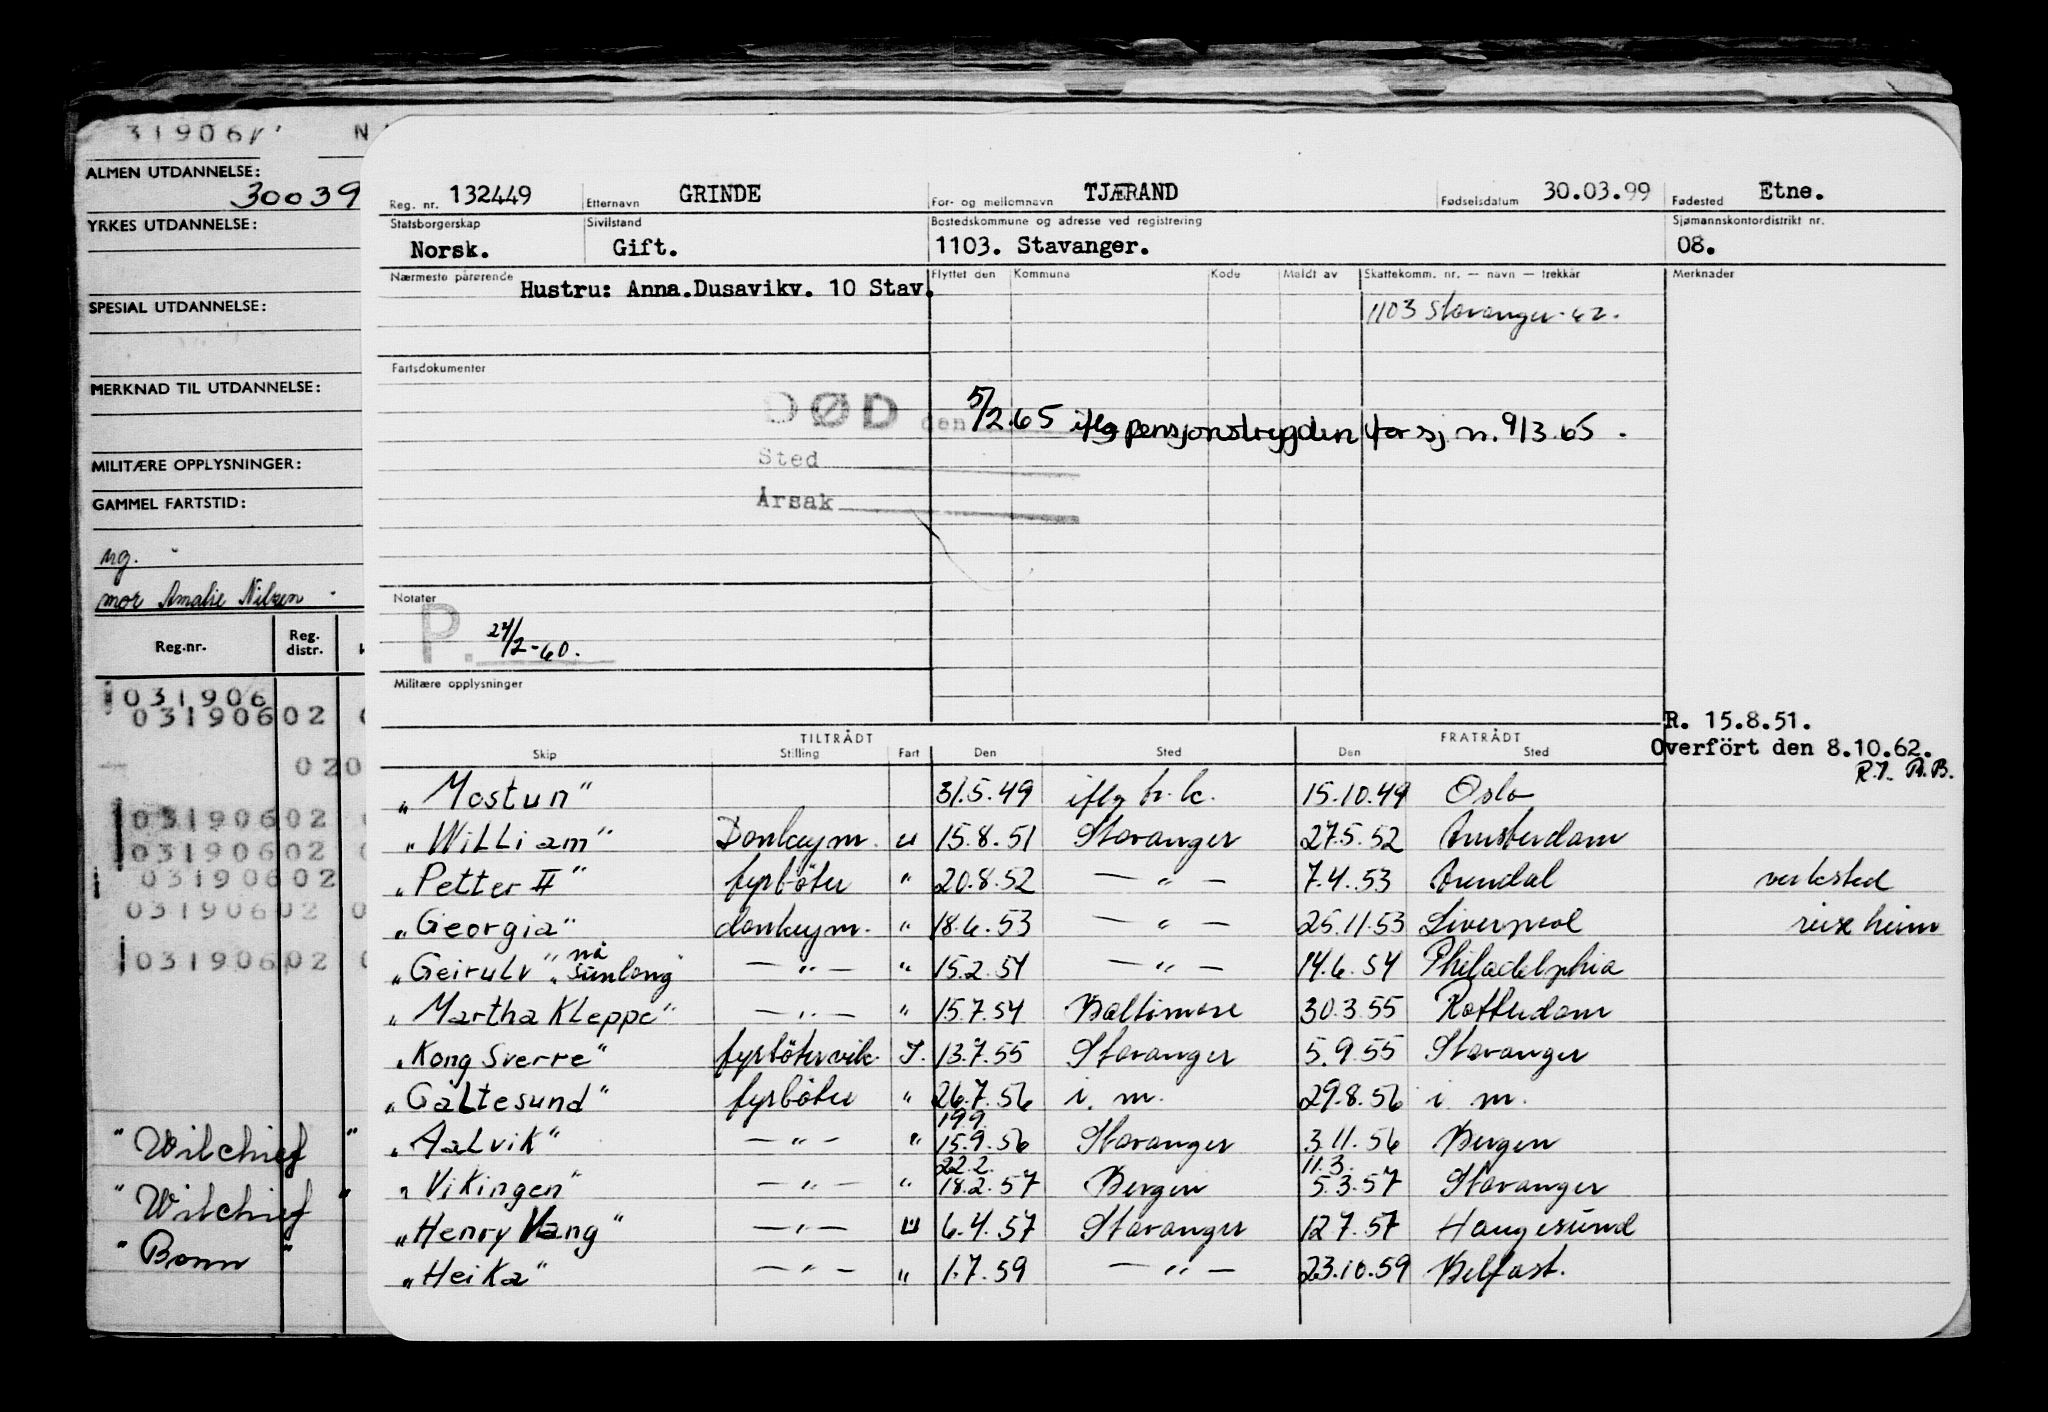 319061
ALMEN UTDANNELSE:
30039
YRKES UTDANNELSE:
SPESIAL UTDANNELSE:
MERKNAD TIL UTDANNELSE:
MILITÆRE OPPLYSNINGER:
GAMMEL FARTSTID:
ug.
mor Amalie Nilsen
Reg.nr. Reg. distr.
031906
03190602
020
03190602
03190602
03190602
03190602
03190602
"Wilchief"
"Wilchief"
"Bonn"
Reg. nr. 132449 Etternavn GRINDE For- og mellomnavn TJÆRAND Fødselsdatum 30.03.99 Fødested Etne.
Statsborgerskap Sivilstand Bostedskommune og adresse ved registrering Sjømannskontordistrikt nr.
Norsk. Gift. 1103. Stavanger. 08.
Nærmeste pårørende Flyttet den Kommune Kode Meldt av Skattekomm. nr. — navn — trekkår Merknader
Hustru: Anna.Dusavikv. 10 Stav.
1103 Stavanger - 62.
Fartsdokumenter
DØD den 5/2.65 iflg pensjonstrygden for sj n. 9/3.65.
Sted
Årsak
Notater
P. 24/2-60.
Militære opplysninger
R. 15.8.51.
TILTRÅDT FRATRÅDT
Overfört den 8.10.62.
Skip Stilling Fart Den Sted Den Sted
R.T. A.B.
"Mostun" 31.5.49 iflg h.k. 15.10.49 Oslo
"William" Donkeym. u 15.8.51 Stavanger 27.5.52 Amsterdam
"Petter II" fyrböter " 20.8.52 — " — 7.4.53 Arendal verksted
"Georgia" donkeym. " 18.6.53 — " — 25.11.53 Liverpool reise heim
"Geirulv" nå "Sunlong" — " — " 15.2.54 — " — 14.6.54 Philadelphia
"Martha Kleppe" — " — " 15.7.54 Baltimore 30.3.55 Rotterdam
"Kong Sverre" fyrbötervik. I. 13.7.55 Stavanger 5.9.55 Stavanger
"Galtesund" fyrböter " 26.7.56 i. m. 29.8.56 i m.
19.9.
"Aalvik" — " — " 15.9.56 Stavanger 3.11.56 Bergen
22.2. 11.3.
"Vikingen" — " — " 18.2.57 Bergen 5.3.57 Stavanger
"Henry Vang" — " — U 6.4.57 Stavanger 12.7.57 Haugesund
"Heika" — " — " 1.7.59 — " — 23.10.59 Belfast.